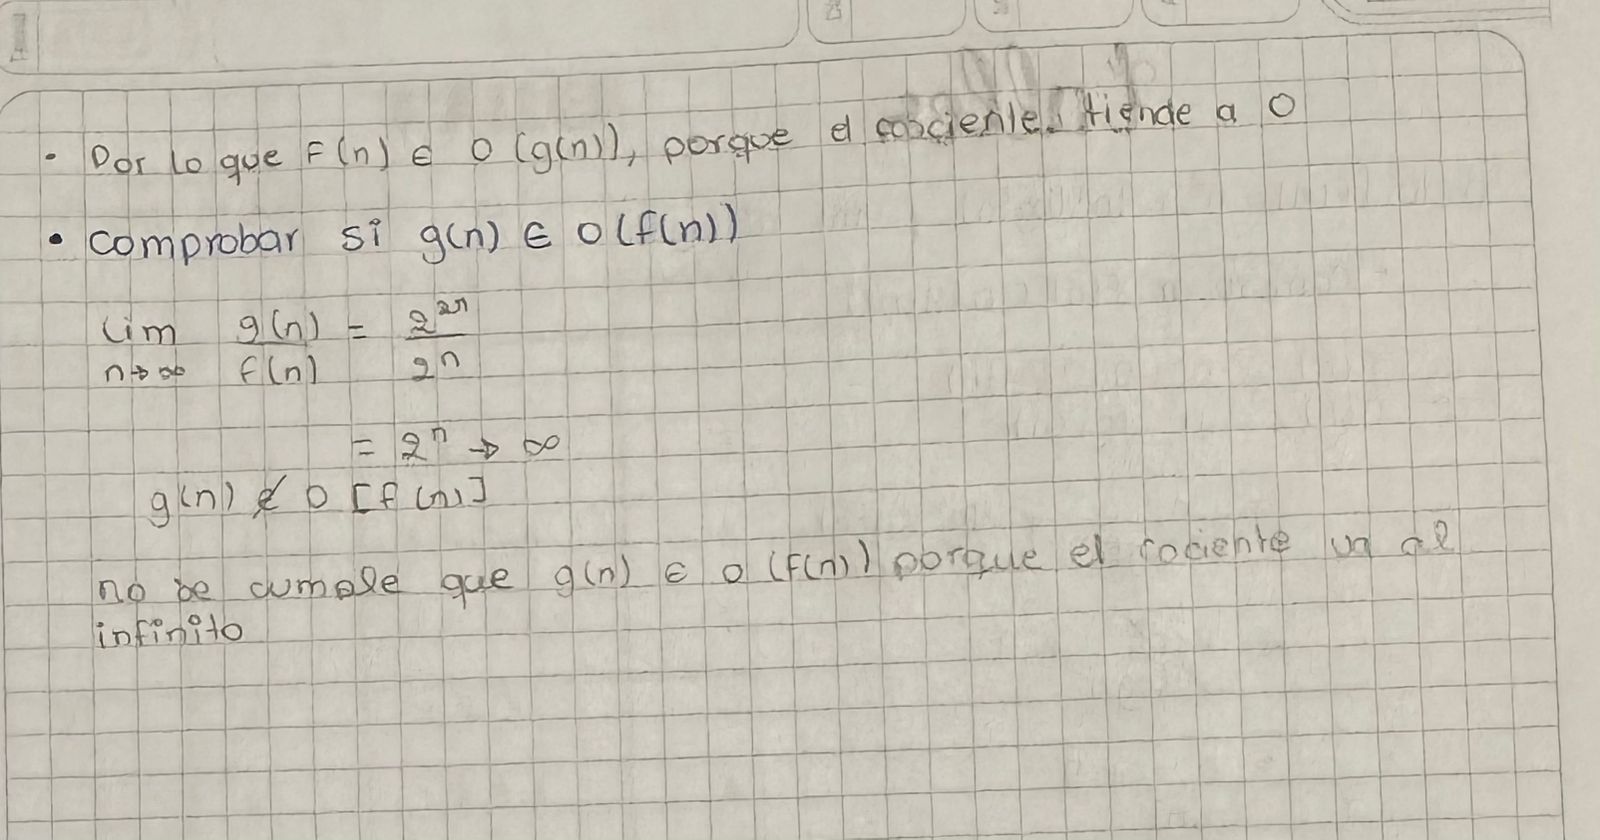 · Por lo que F(n) ∈ O (g(n)), porque el cociente. tiende a 0
• comprobar si g(n) ∈ O(f(n))
lim g(n) = 2^2n
n→∞ f(n) 2^n
= 2^n → ∞
g(n) ∉ O [f(n)]
no se cumple que g(n) ∈ O (f(n)) porque el cociente va al
infinito